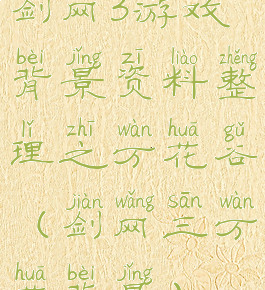 剑网3游戏
bèi jǐng zī liào zhěng
背景资料整
lǐ zhī wàn huā gǔ
理之万花谷
jiàn wǎng sān wàn
（剑网三万
huā bèi jǐng